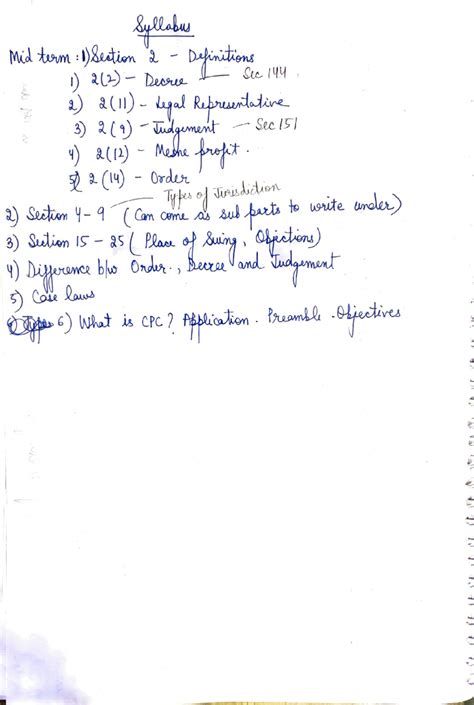 Syllabus
Mid term : 1) Section 2 - Definitions
1) 2(2) - Decree - Sec 144
2) 2(11) - Legal Representative
3) 2(9) - Judgement - Sec 151
4) 2(12) - Mesne profit.
5) 2(14) - Order
Types of Jurisdiction
2) Section 4-9 (Can come as sub parts to write under)
3) Section 15 - 25 ( Place of Suing, Objections)
4) Difference b/w Order., Decree and Judgement
5) Case laws
6) What is CPC? Application. Preamble. Objectives